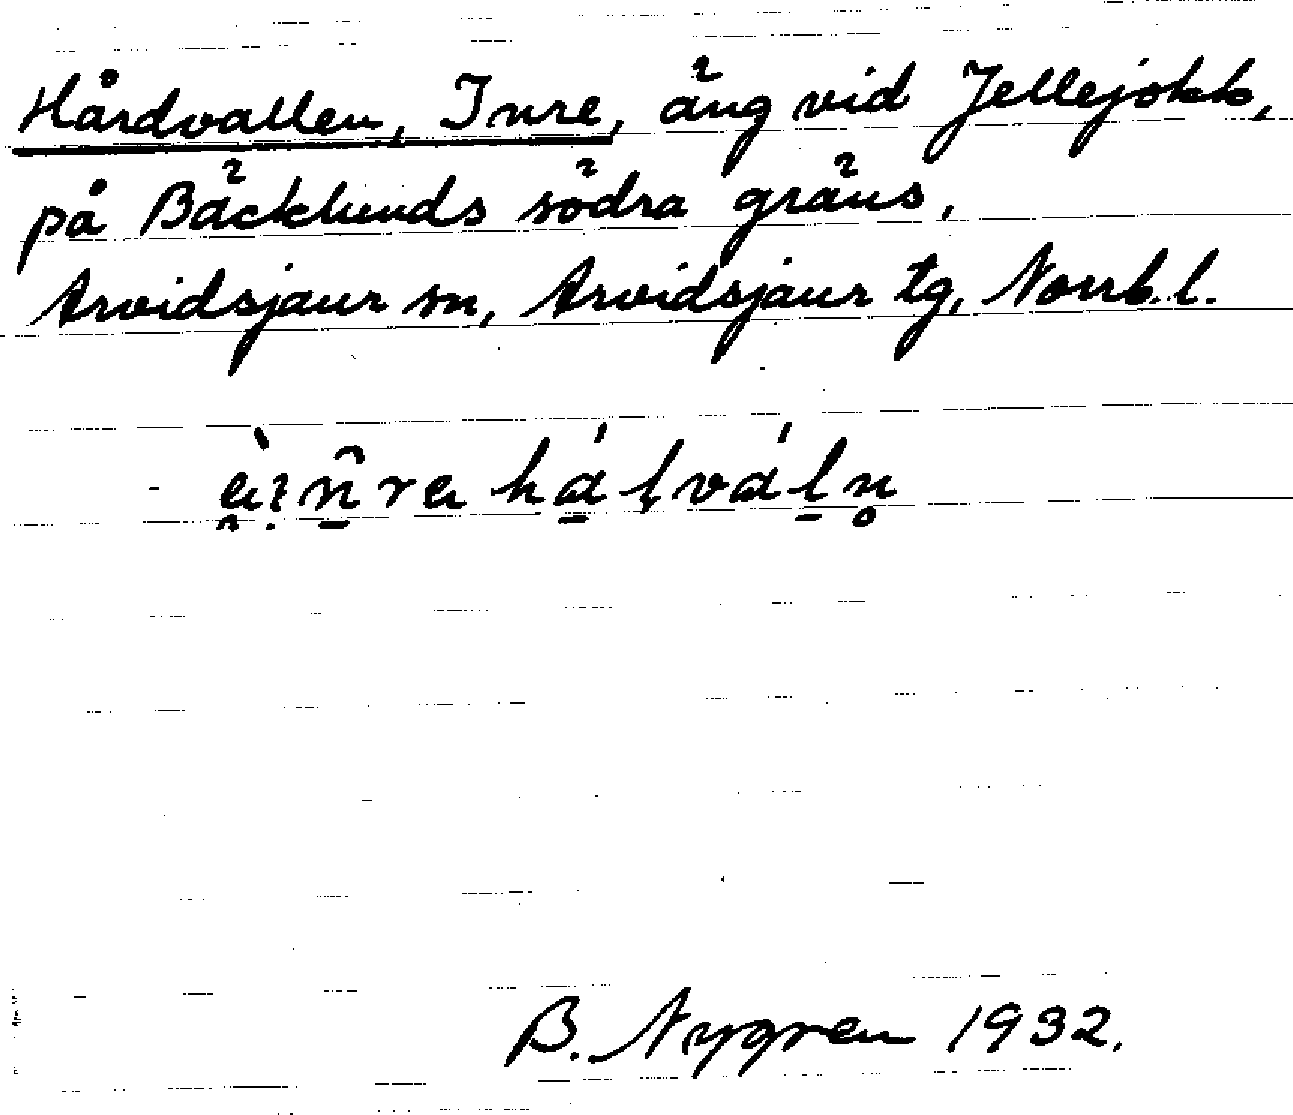 Hårdvallen, Inre, äng vid Jellejokk,
på Bäcklunds södra gräns,
Arvidsjaur sn, Arvidsjaur tg, Norrb.l.
B. Nygren 1932.